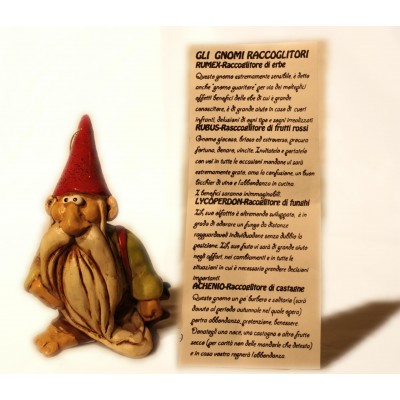 GLI GNOMI RACCOGLITORI
RUMEX-Raccoglitore di erbe
Questo gnomo estremamente sensibile, è detto
anche "gnomo guaritore" per via dei molteplici
effetti benefici delle erbe di cui è grande
conoscitore, è di grande aiuto in caso di cuori
infranti, delusioni di ogni tipo e sogni irrealizzati
RUBUS-Rasccoglitore di frutti rossi
Gnomo giocoso, brioso ed estroverso, procura
fortuna, denaro, vincite. Invitatelo e portatelo
con voi in tutte le occasioni mondane vi sarà
estremamente grato, ama la confusione, un buon
bicchier di vino e l'abbondanza in cucina.
I benefici saranno inimmaginabili.
LYCOPERDON-Raccoglitore di funghi
Il suo olfatto è altremodo sviluppato, è in
grado di odorare un fungo da distanze
ragguardevoli individuandone senza dubbio la
posizione. Il suo fiuto vi sarà di grande aiuto
negli affari, nei cambiamenti e in tutte le
situazioni in cui è necessario prendere decisioni
importanti.
ACHENIO-Raccoglitore di castagne
Questo gnomo un po' burbero e solitario (sarà
dovuto al periodo autunnale nel quale opera)
porta abbondanza, protezione, benessere
Donategli una noce, una castagna o altro frutto
secco (per carità non delle mandorle che detesta)
e in casa vostra regnerà l'abbondanza.